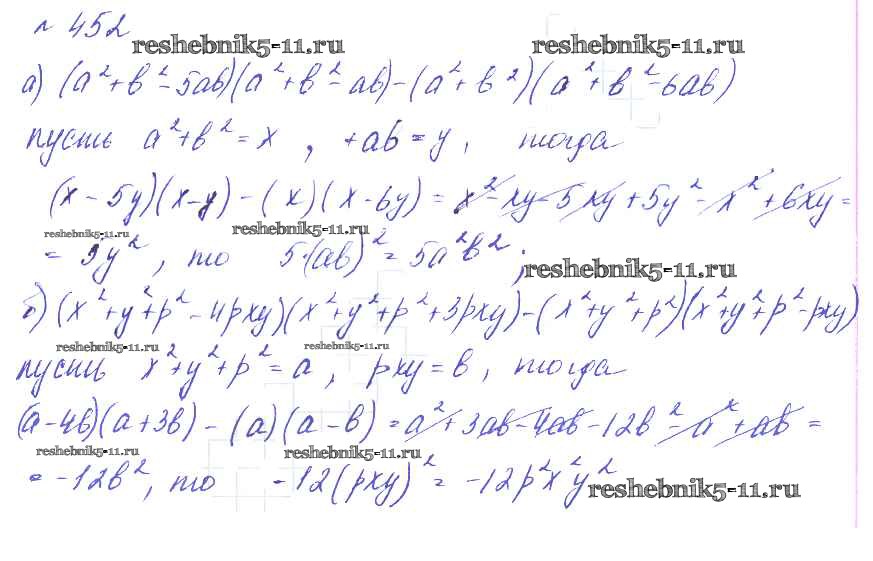 № 452
reshebnik5-11.ru reshebnik5-11.ru
а) (a²+b²-5ab)(a²+b²-ab)-(a²+b²)(a²+b²-6ab)
пусть a²+b²=x, +ab=y, тогда
(x-5y)(x-y)-(x)(x-6y)=x²-xy-5xy+5y²-x²+6xy=
reshebnik5-11.ru reshebnik5-11.ru
=5y², то 5·(ab)²=5a²b²;
reshebnik5-11.ru
б) (x²+y²+p²-4pxy)(x²+y²+p²+3pxy)-(x²+y²+p²)(x²+y²+p²-pxy)
reshebnik5-11.ru reshebnik5-11.ru
пусть x²+y²+p²=a, pxy=b, тогда
(a-4b)(a+3b)-(a)(a-b)=a²+3ab-4ab-12b²-a²+ab=
reshebnik5-11.ru reshebnik5-11.ru
=-12b², то -12(pxy)²=-12p²x²y²
reshebnik5-11.ru